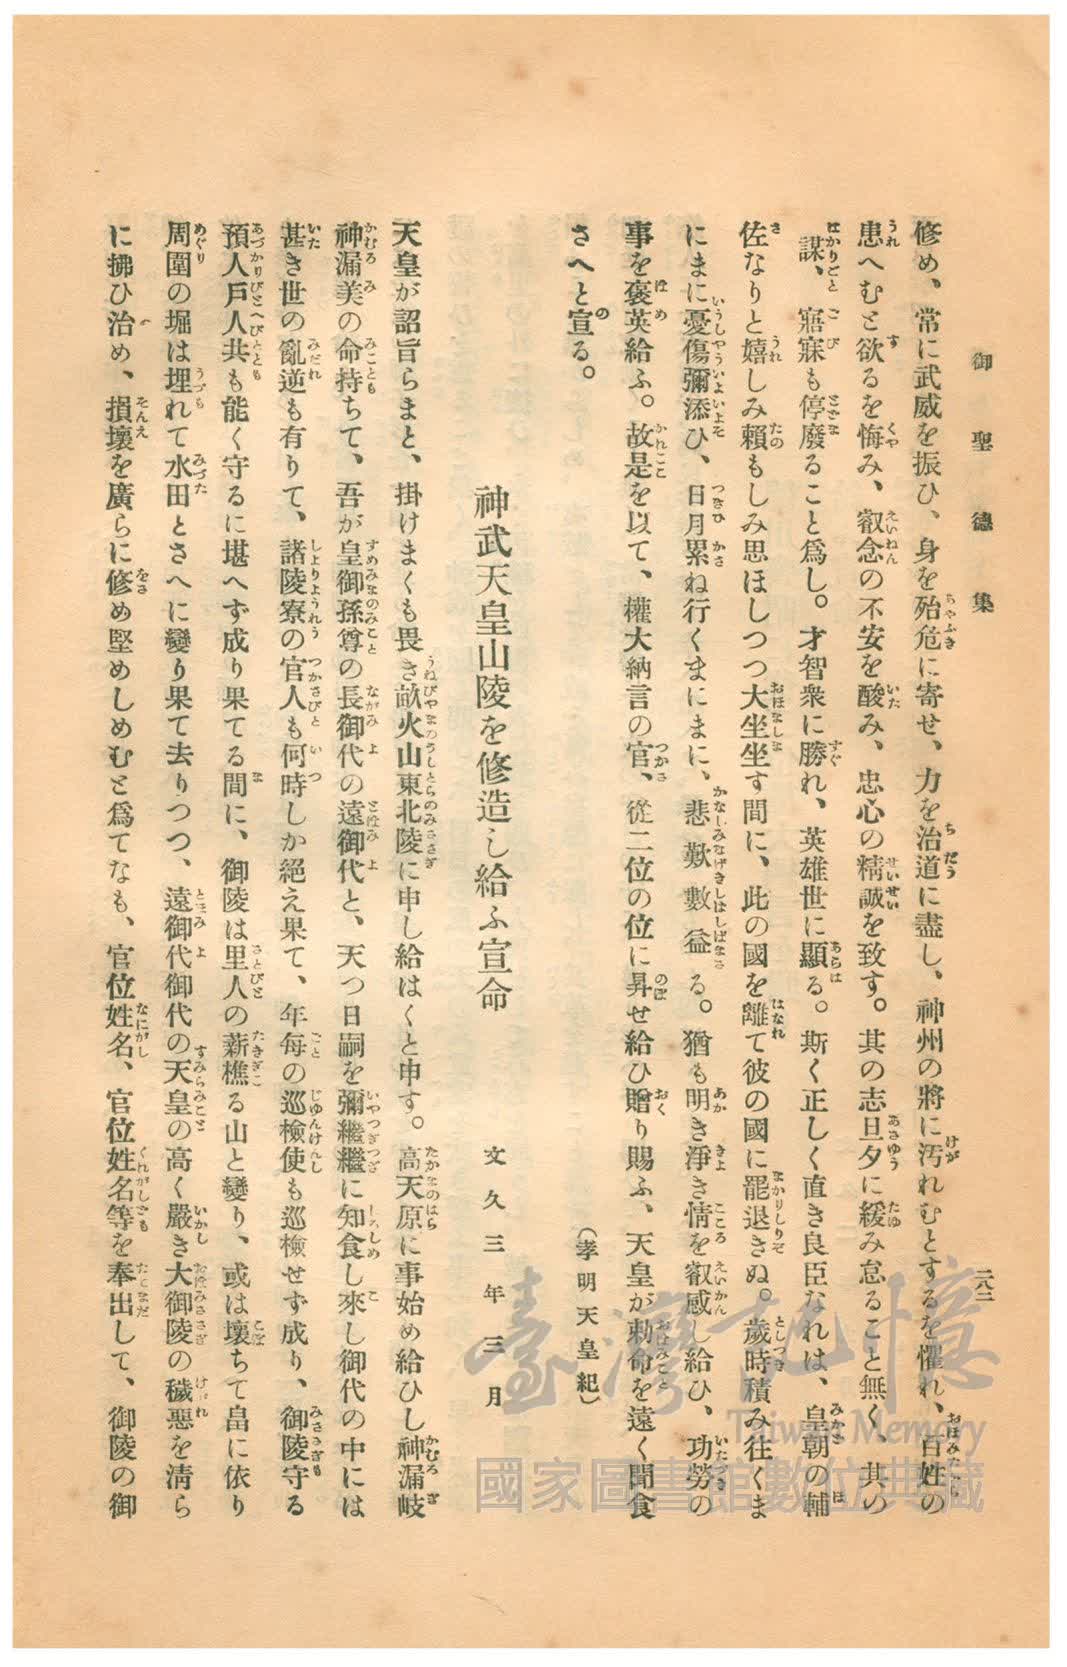 御聖德集
二八二
修め、常に武威を振ひ、身を殆危に寄せ、力を治道に盡し、神州の將に汚れむとするを懼れ、百姓の
患へむと欲るを悔み、叡念の不安を酸み、忠心の精誠を致す。其の志旦夕に緩み怠ること無く、其の
謀、寤寐も停廢ること爲し。才智衆に勝れ、英雄世に顯る。斯く正しく直き良臣なれは、皇朝の輔
佐なりと嬉しみ賴もしみ思ほしつつ大坐坐す間に、此の國を離て彼の國に罷退きぬ。歲時積み往くま
にまに憂傷彌添ひ、日月累ね行くまにまに、悲歎數益る。猶も明き淨き情を叡感し給ひ、功勞の
事を褒英給ふ。故是を以て、權大納言の官、從二位の位に昇せ給ひ贈り賜ふ、天皇が勅命を遠く聞食
さへと宣る。
(孝明天皇紀)
神武天皇山陵を修造し給ふ宣命
文久三年三月
天皇が詔旨らまと、掛けまくも畏き畝火山東北陵に申し給はくと申す。高天原に事始め給ひし神漏岐
神漏美の命持ちて、吾が皇御孫尊の長御代の遠御代と、天つ日嗣を彌繼繼に知食し來し御代の中には
甚き世の亂逆も有りて、諸陵寮の官人も何時しか絶え果て、年每の巡檢使も巡檢せず成り、御陵守る
預人戸人共も能く守るに堪へず成り果てる間に、御陵は里人の薪樵る山と變り、或は壞ちて畠に依り
周圍の堀は埋れて水田とさへに變り果て去りつつ、遠御代御代の天皇の高く嚴き大御陵の穢惡を淸ら
に拂ひ治め、損壞を廣らに修め堅めしめむと爲てなも、官位姓名、官位姓名等を奉出して、御陵の御
臺灣記憶
Taiwan Memory
國家圖書館數位典藏